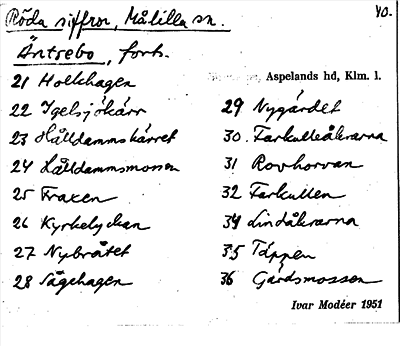 Röda siffror, Målilla sn.
40.
Äntsebo, forts.
Aspelands hd, Klm. l.
21 Hollhagen
22 Igelsjökärr
23 Hålldammskärret
24 Hålldammsmossen
25 Fraxen
26 Kyrkelyckan
27 Nybråtet
28 Sågehagen
29 Nygärdet
30. Farkulleåkrarna
31 Rovhorvan
32 Farkullen
34 Lindåkrarna
35 Täppen
36 Gärdsmossen
Ivar Modéer 1951